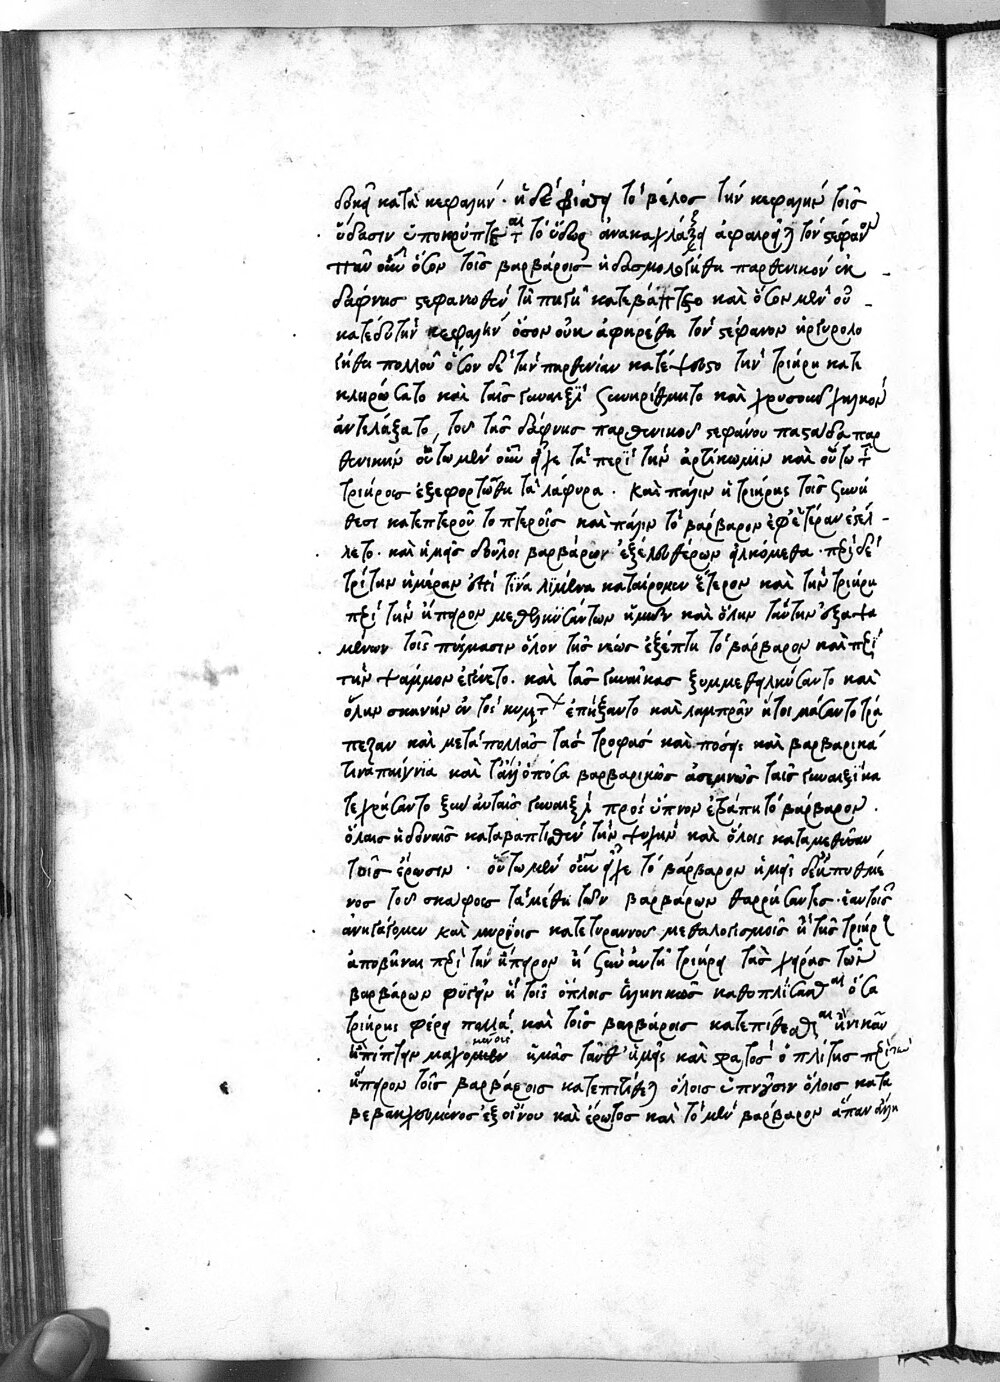 δοκεῖ κατὰ κεφαλήν · ἡ δὲ φθάνει τὸ βέλος τὴν κεφαλὴν τοῖς
ὕδασιν ὑποκρύπτεται τὸ ὕδωρ ἀνακαχλάζει ἀφαιρεῖ τὸν στέφανον
πᾶν οὖν ὅσον τοῖς βαρβάροις ἠδασμολογήθη παρθενικὸν ἐκ
δάφνης στεφανωθὲν τῇ πηγῇ κατεβάπτιζε καὶ ὅσον μὲν οὐ
κατέδυ τὴν κεφαλὴν ὅσον οὐκ ἀφῃρέθη τὸν στέφανον ἠργυρολο
γήθη πολλοῦ ὅσον δὲ τὴν παρθενίαν κατέψευστο τὴν τριήρη κατε
κληρώσατο καὶ ταῖς γυναιξὶ συνηρίθμητο καὶ χρυσοῦ χαλκὸν
ἀντηλλάξατο, τοῦ τῆς δάφνης παρθενικοῦ στεφάνου παστάδα παρ
θενικὴν οὕτω μὲν οὖν εἶχε τὰ περὶ τὴν ἀρτύκωμιν καὶ οὕτω τ
τριήροις ἐξεφορτώθη τὰ λάφυρα · καὶ πάλιν ἡ τριήρης τοῖς συνή
θεσι κατεπτεροῦτο πτεροῖς καὶ πάλιν τὸ βάρβαρον ἐφ' ἑτέραν ἐστέλ
λετο · καὶ ἡμεῖς δοῦλοι βαρβάρων ἐξ ἐλευθέρων εἱλκόμεθα · περὶ δὲ
τρίτην ἡμέραν ἐπί τινα λιμένα καταίρομεν ἕτερον καὶ τὴν τριήρη
περὶ τὴν ἤπειρον μεθελκυσάντων ἡμῶν καὶ ὅλην ταύτην δεξαμε
μένων τοῖς πείσμασιν ὅλον τῆς νεὼς ἐξέπτη τὸ βάρβαρον καὶ περὶ
τὴν ψάμμον ἐγένετο · καὶ τὰς γυναῖκας ξυμμεθειλκύσαντο καὶ
ὅλην σκηνὴν ἐπήξαντο καὶ λαμπρὰν ἡτοιμάσαντο τρά
πεζαν καὶ μετὰ πολλὰς τὰς τροφὰς καὶ πόσεις καὶ βαρβαρικά
τινα παίγνια καὶ τἆλλ' ὁπόσα βαρβαρικῶς ἀσέμνως ταῖς γυναιξὶ κα
τεχρήσαντο ξὺν αὐταῖς γυναιξὶ πρὸς ὕπνον ἐτράπη τὸ βάρβαρον ·
ὅλαις ἡδοναῖς καταβαπτισθὲν τὴν ψυχὴν καὶ ὅλοις καταμεθυσθὲν
τοῖς ἔρωσιν · οὕτω μὲν οὖν εἶχε τὸ βάρβαρον ἡμεῖς δ' ἐκ πυθμέ
νος τοῦ σκάφους τὰ μέθη τῶν βαρβάρων θαρρήσαντες · ἑαυτοὺς
ἀνηγάγομεν καὶ μυρίοις κατετυραννούμεθα λογισμοῖς ἢ τῆς τριήρους
ἀποβῆναι περὶ τὴν ἤπειρον ἢ σὺν αὐτῇ τριήρει τὰς χεῖρας τῶν
βαρβάρων φυγεῖν ἢ τοῖς ὅπλοις ἑλληνικῶς καθοπλίσασθαι ὅσα
τριήρης φέρει πολλά, καὶ τοῖς βαρβάροις κατεπιθέσθαι ἡνίκα
ἐπίπτειν μαχομένοις ἡμᾶς ταῦθ' ἡμεῖς καὶ στρατὸς ὁπλίτης περὶ τὴν
ἤπειρον τοῖς βαρβάροις κατεπιτίθεται ὅλοις ὑπνοῦσιν ὅλοις κατα
βεβακχευμένοις ἐξ οἴνου καὶ ἔρωτος καὶ τὸ μὲν βάρβαρον ἅπαν ἀνῄρη